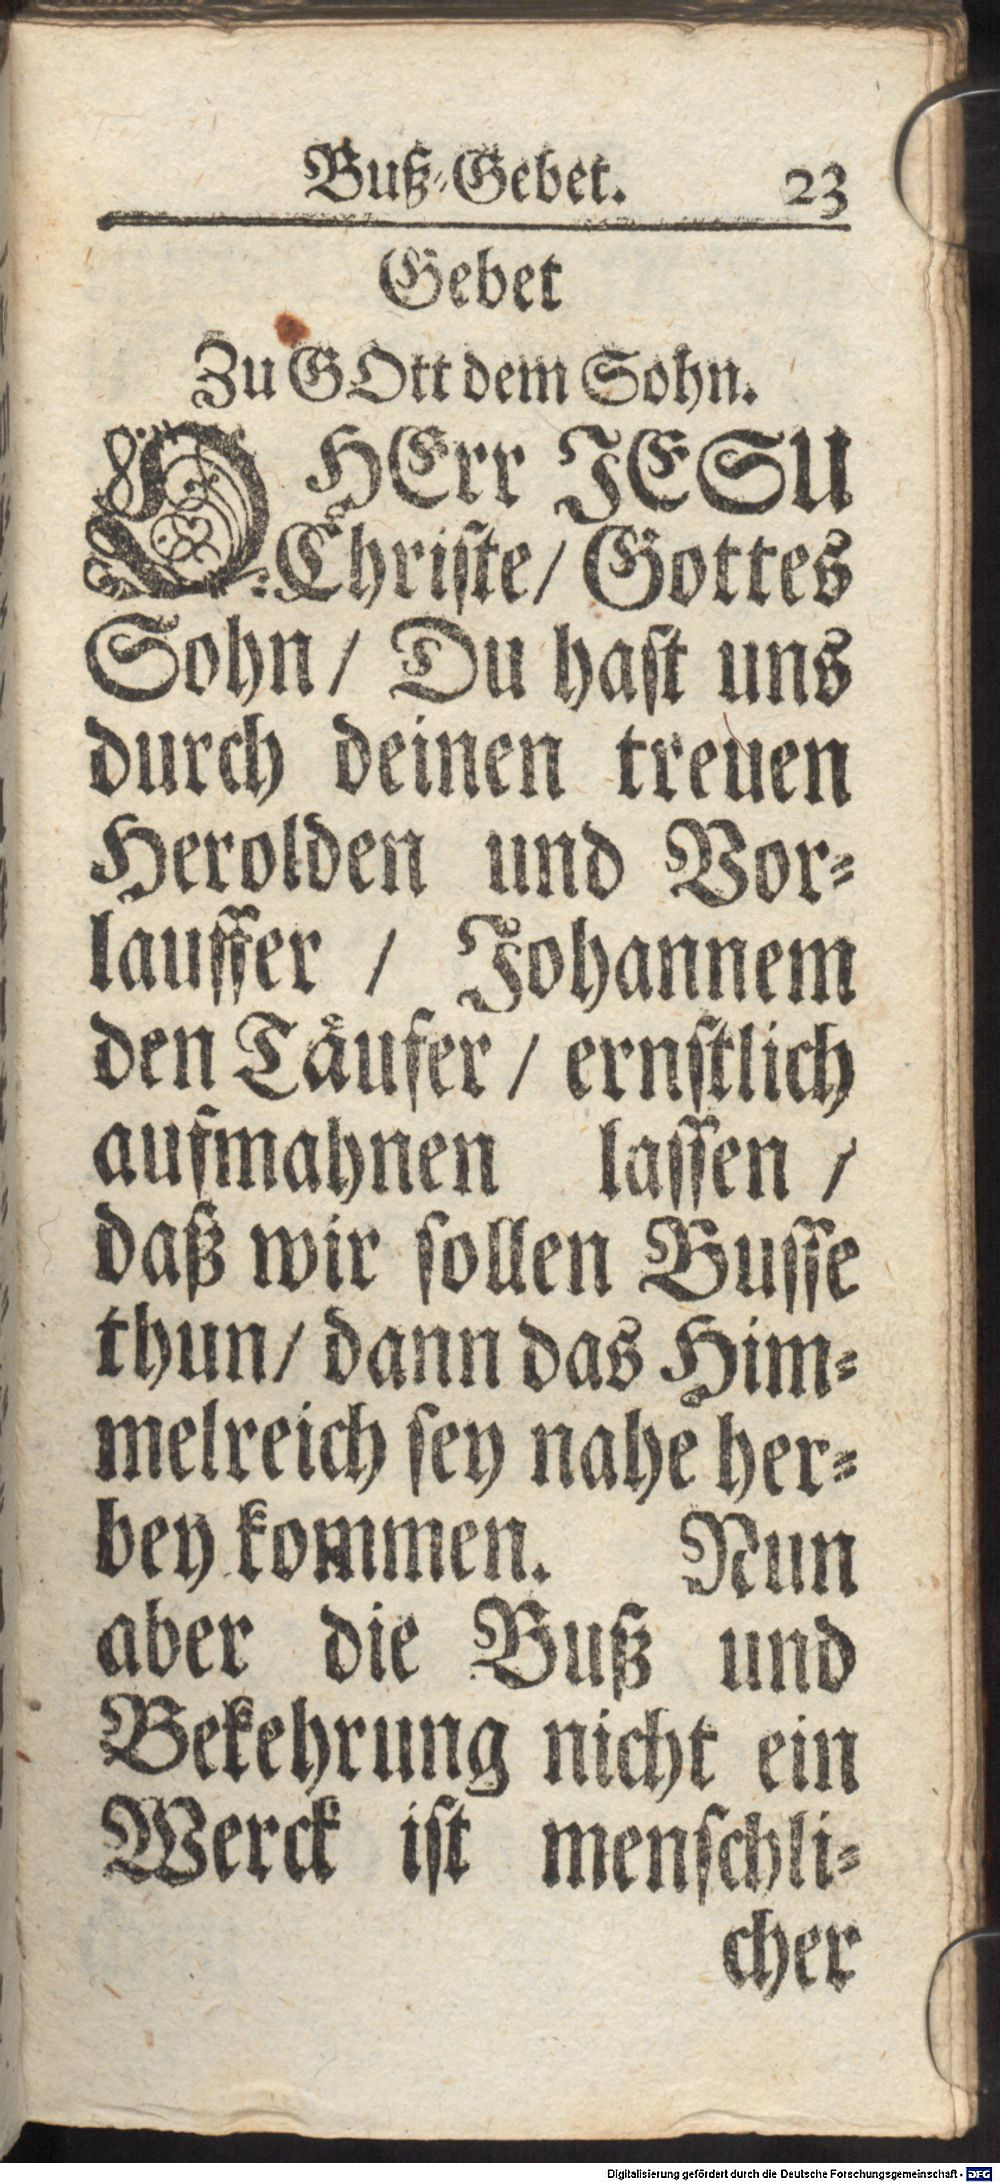 Buß-Gebet. 23
Gebet
Zu GOtt dem Sohn.
O HErr JESU
Christe/ Gottes
Sohn/ Du hast uns
durch deinen treuen
Herolden und Vor-
lauffer / Johannem
den Täufer / ernstlich
aufmahnen lassen /
daß wir sollen Busse
thun/ dann das Him-
melreich sey nahe her-
bey kommen. Nun
aber die Buß und
Bekehrung nicht ein
Werck ist menschli-
cher
Digitalisierung gefördert durch die Deutsche Forschungsgemeinschaft - DFG